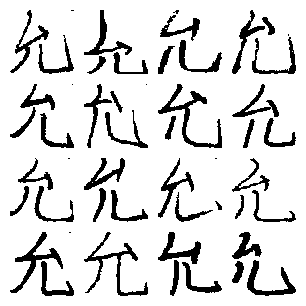 允允允允
允允允允
允允允允
允允允允